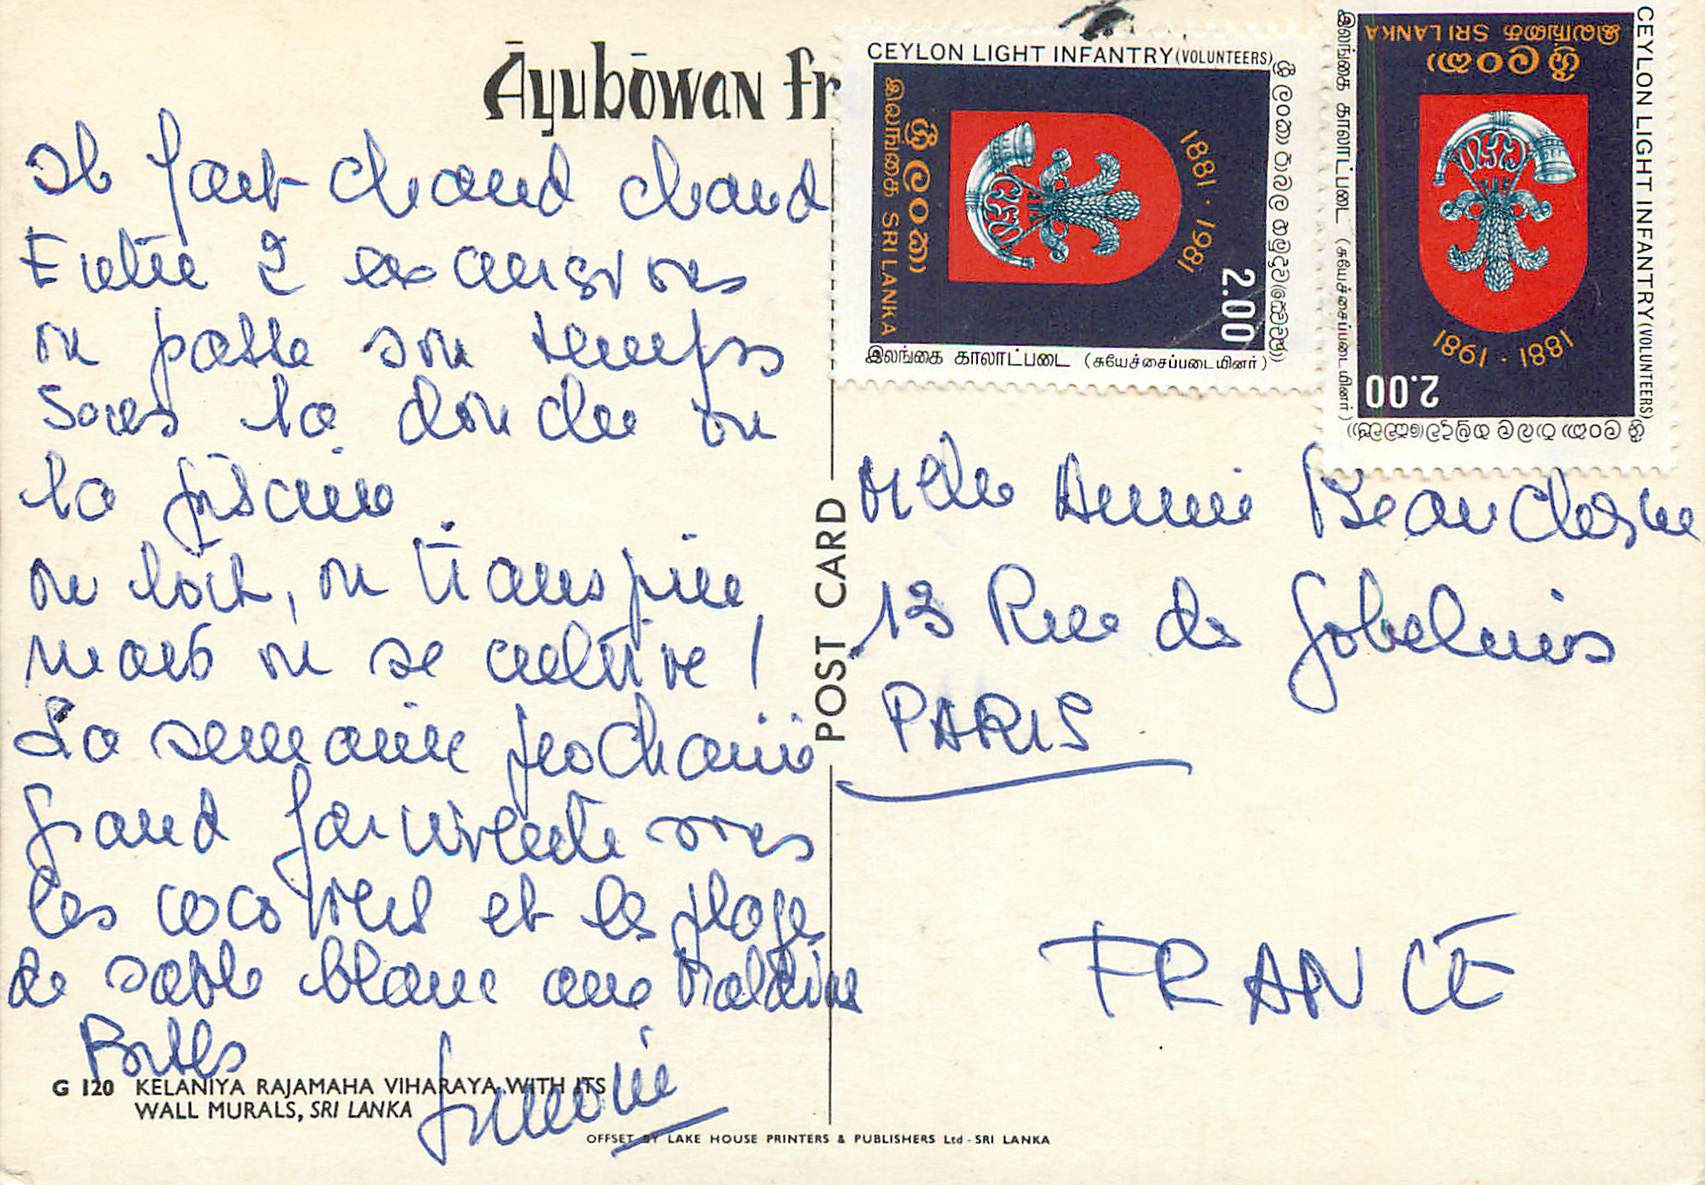 Āyubōwan fr
Il fait chaud chaud
Entre 2 excursions
on passe son temps
sous la douche ou
la piscine.
on boit, on transpire
mais on se cultive !
La semaine prochaine
grand farniente sous
les cocotiers et les plages
de sable blanc aux Maldives
Bises
G 120 KELANIYA RAJAMAHA VIHARAYA WITH ITS
WALL MURALS, SRI LANKA
OFFSET BY LAKE HOUSE PRINTERS & PUBLISHERS Ltd - SRI LANKA
POST CARD
CEYLON LIGHT INFANTRY (VOLUNTEERS)
இலங்கை SRI LANKA
ශ්‍රී ලංකා
1881 · 1981
2.00
ශ්‍රී ලංකා
இலங்கை காலாட்படை (சுயேச்சைப்படையினர்)
CEYLON LIGHT INFANTRY (VOLUNTEERS)
இலங்கை SRI LANKA
ශ්‍රී ලංකා
1881 · 1981
2.00
ශ්‍රී ලංකා
இலங்கை காலாட்படை (சுயேச்சைப்படையினர்)
Melle Annie Beauchesne
13 Rue de Gobelins
PARIS
FRANCE